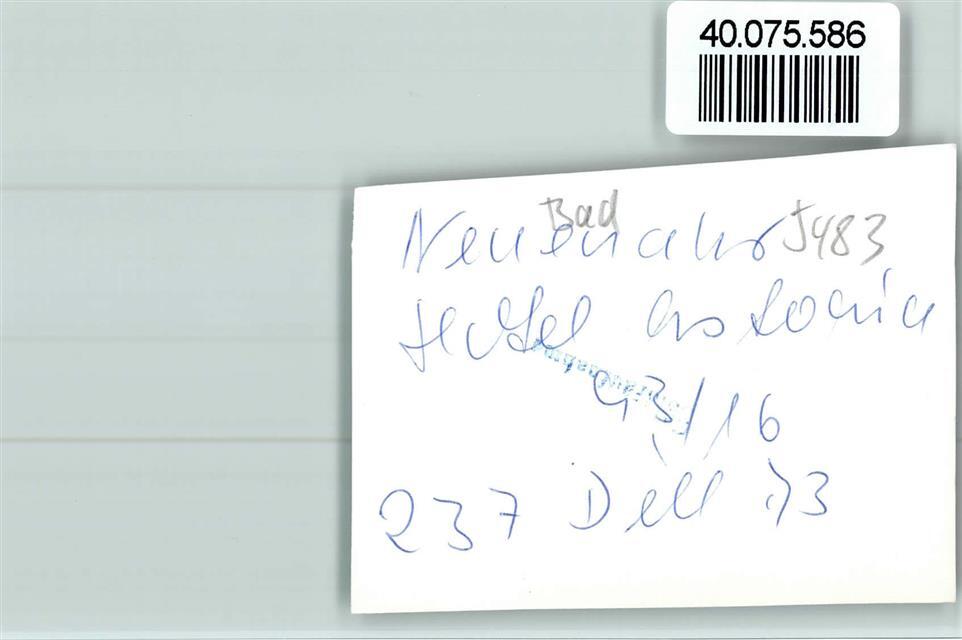 40.075.586
Bad
Neuenahr J483
Hotel Astoria
93/16
237 Dell 73